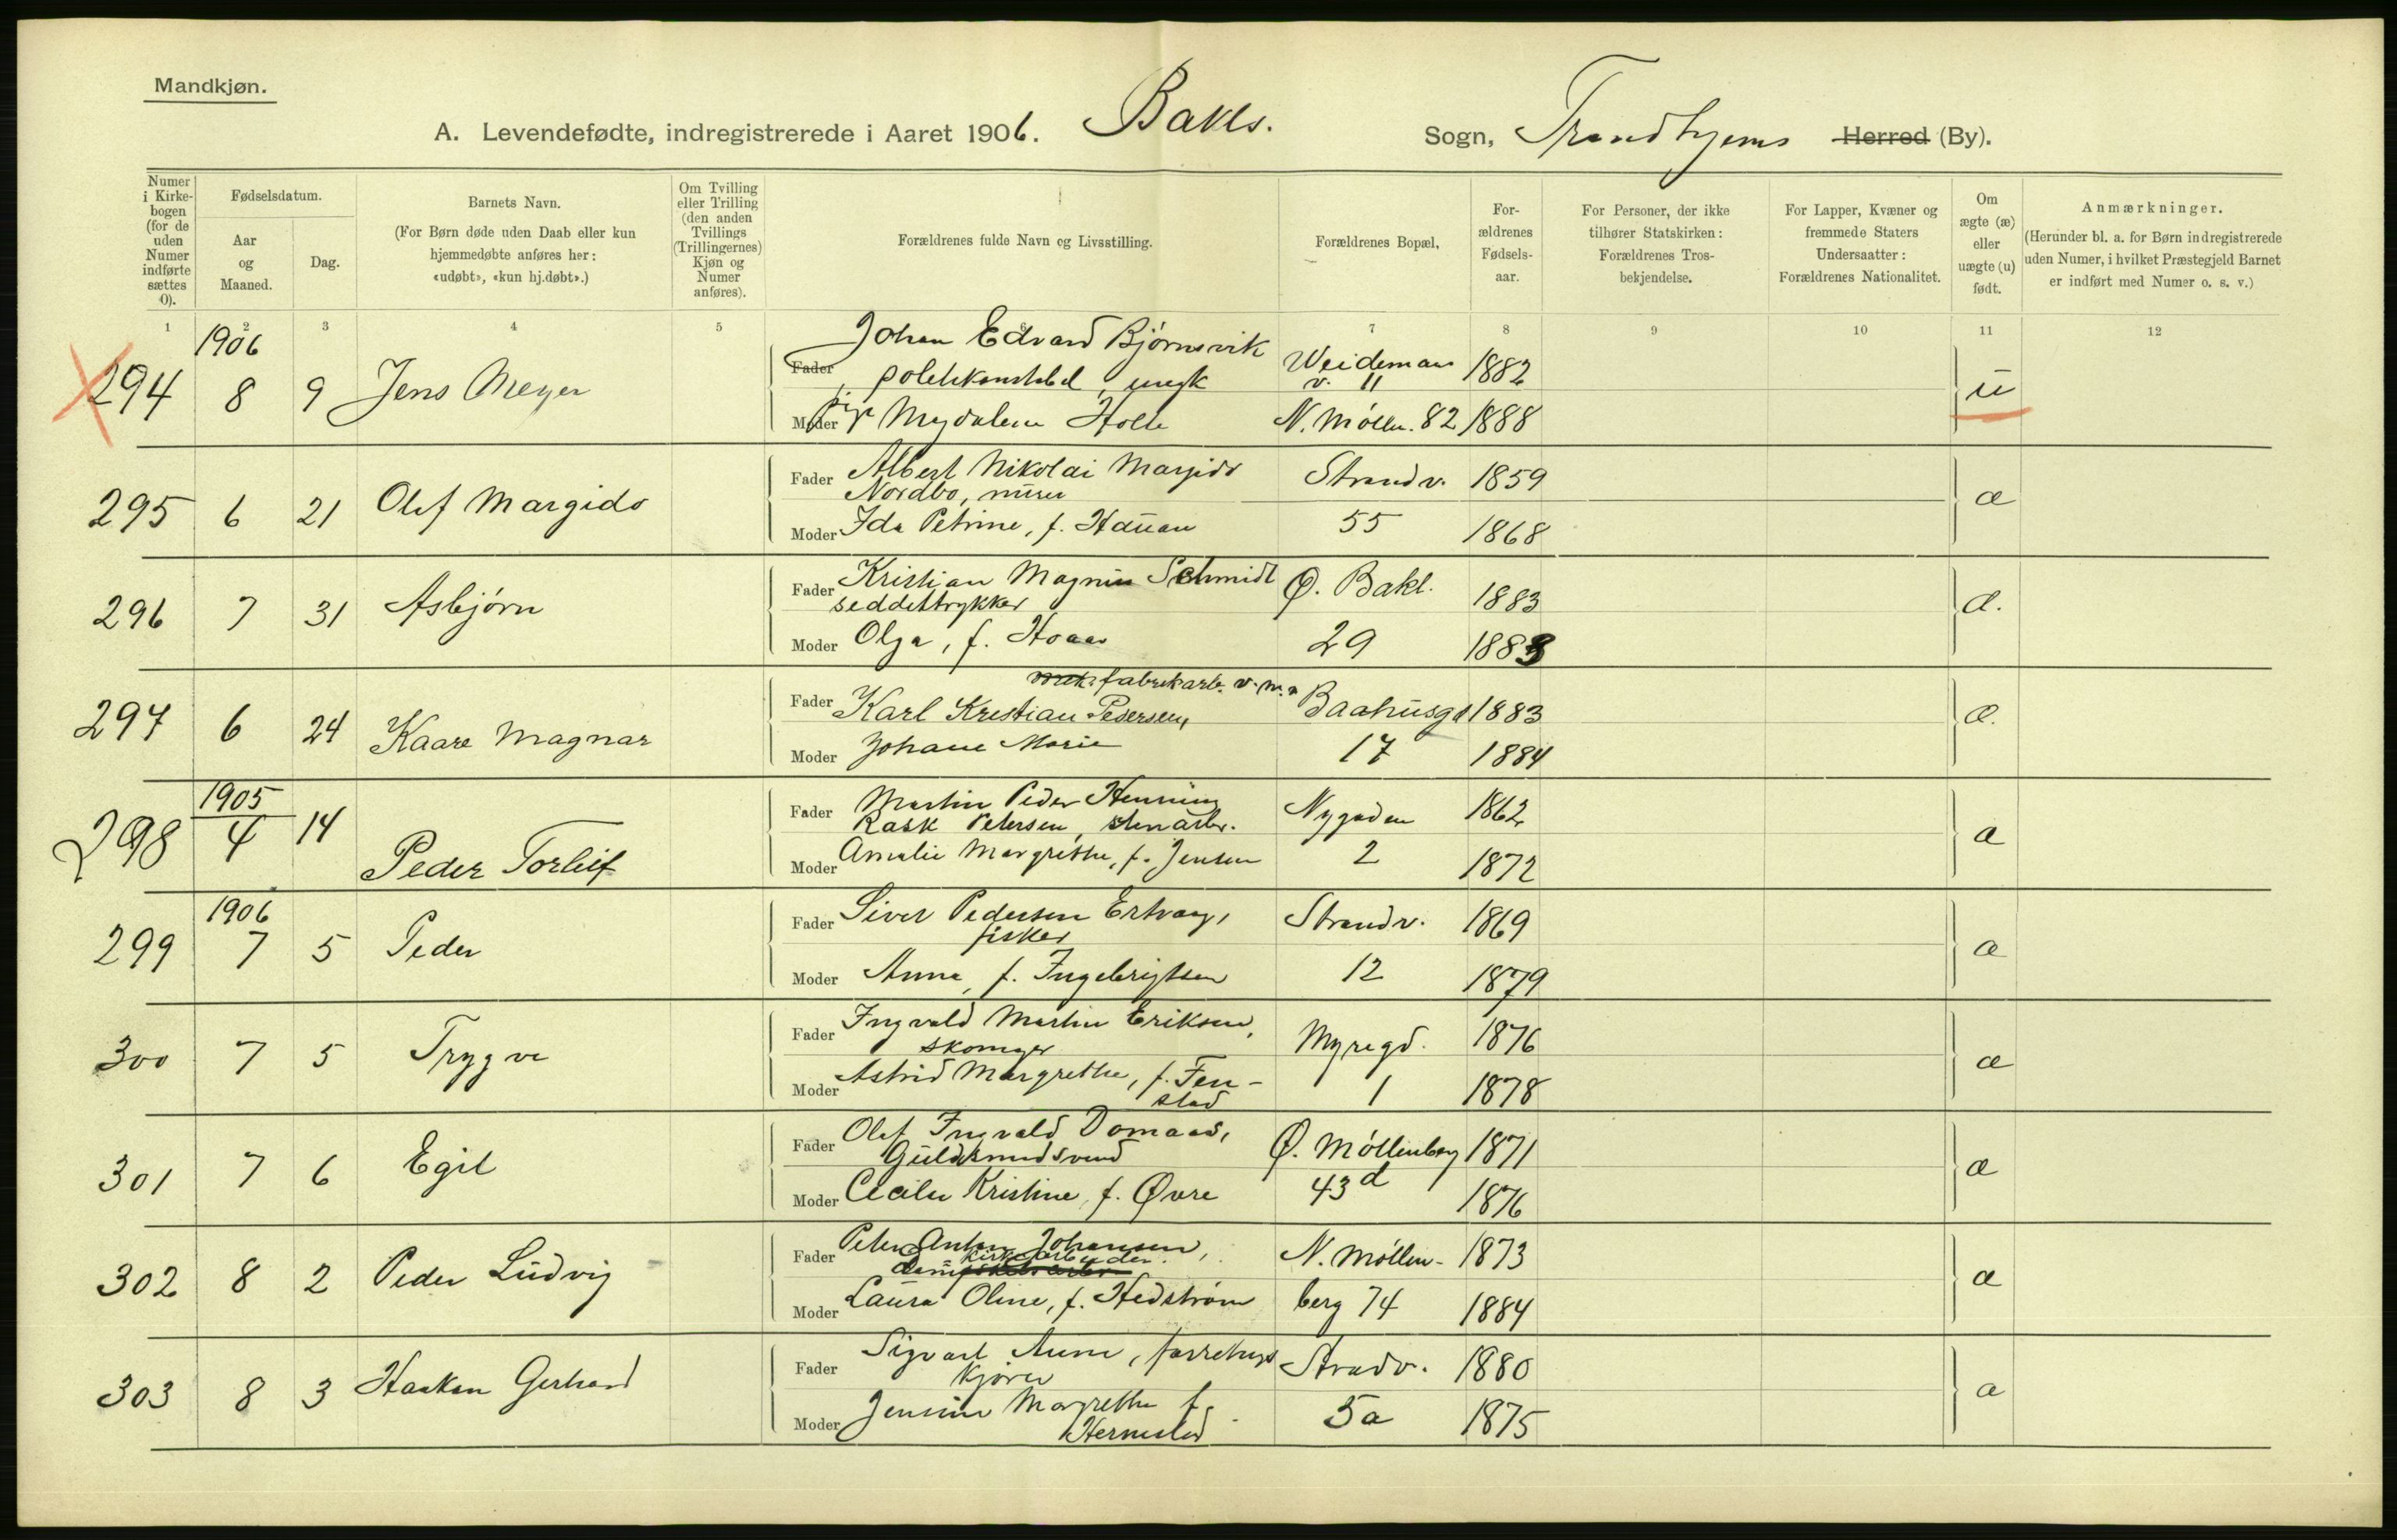 Mandkjøn.
A. Levendefødte, indregistrerede i Aaret 1906. Bakls. Sogn, Trondhjems Herred (By).
Numer i Kirkebogen (for de uden Numer indførte sættes 0).
Fødselsdatum.
Aar og Maaned.
Dag.
Barnets Navn.
(For Børn døde uden Daab eller kun hjemmedøbte anføres her: «udøbt», «kun hj.døbt».)
Om Tvilling eller Trilling (den anden Tvillings (Trillingernes) Kjøn og Numer anføres).
Forældrenes fulde Navn og Livsstilling.
Forældrenes Bopæl,
Forældrenes Fødselsaar.
For Personer, der ikke tilhører Statskirken: Forældrenes Trosbekjendelse.
For Lapper, Kvæner og fremmede Staters Undersaatter: Forældrenes Nationalitet.
Om ægte (æ) eller uægte (u) født.
Anmærkninger.
(Herunder bl. a. for Børn indregistrerede uden Numer, i hvilket Præstegjeld Barnet er indført med Numer o. s. v.)
1 2 3 4 5 7 8 9 10 11 12
1906
294 8 9 Jens Meyer
Fader Johan Edvard Bjørnsvik
politikonstabel, ungk
Weideman
v. 11
1882
Moder pige Magdalene Holte N. Mølln. 82 1888
u
295 6 21 Olaf Margido
Fader Albert Nikolai Margido Strandv. 1859
Nordbo, murer
Moder Ida Petrine, f. Hauan 55 1868
æ
296 7 31 Asbjørn
Fader Kristian Magnus Schmidt Ø. Bakl. 1883
seddeltrykker
Moder Olga, f. Hoaas 29 1883
æ.
297 6 24 Kaare Magnar
fabrikarb. v. m.
Fader Karl Kristian Pedersen, Baahusgd 1883
Moder Johane Marie 17 1884
æ.
1905
298 4 14 Peder Torleif
Fader Martin Peder Henning Nygaden 1862
Rask Petersen, stenarb.
Moder Amalie Margrethe, f. Jensen 2 1872
æ
1906
299 7 5 Peder
Fader Siver Pedersen Ertvaag, Strandv. 1869
fisker
Moder Anna, f. Ingebrigtsen 12 1879
æ
300 7 5 Trygve
Fader Ingvald Martin Eriksen, Myregd. 1876
skomager
Moder Astrid Margrethe, f. Fen- 1 1878
stad
æ
301 7 6 Egil
Fader Olaf Ingvald Domaas, Ø. Møllenberg 1871
Guldsmedsvend
Moder Cecilie Kristine, f. Øvre 43d 1876
æ
302 8 2 Peder Ludvig
Fader Peter Anton Johansen, N. Møllen- 1873
Moder Laura Oline, f. Hedstrøm berg 74 1884
æ
303 8 3 Haakon Gerhard
Fader Sigvart Aune, forretnings Strandv. 1880
kjører
Moder Jensine Margrethe f. 5a 1875
Hernestad
æ